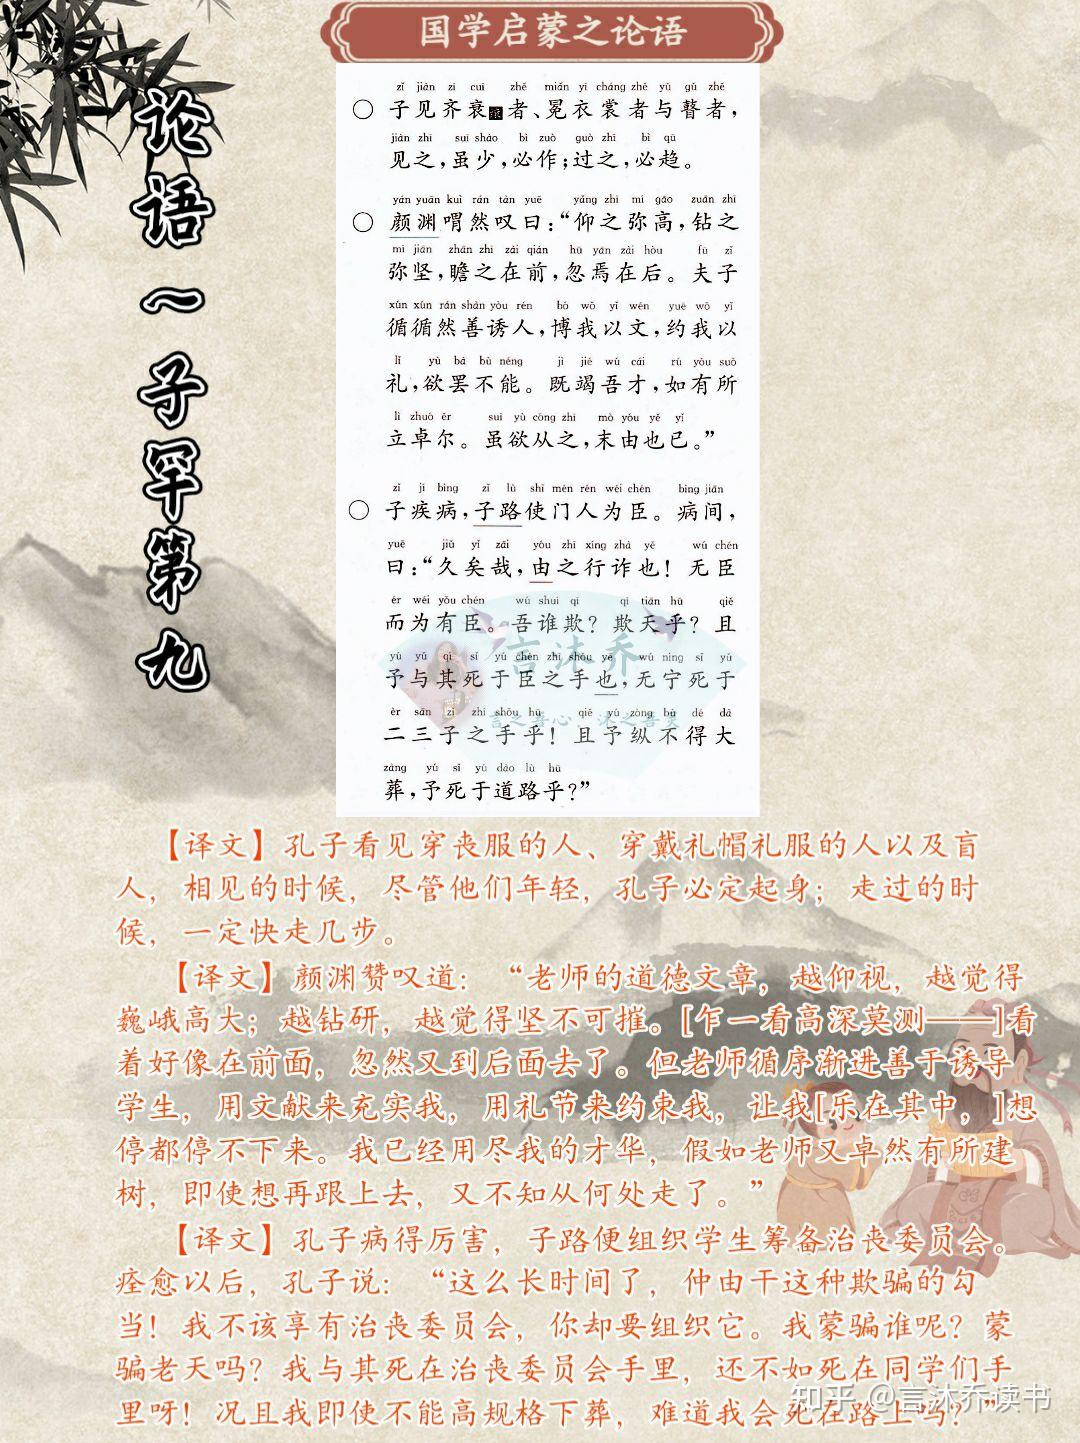 国学启蒙之论语
论语~子罕第九
zǐ jiàn zī cuī zhě miǎn yī cháng zhě yǔ gǔ zhě
〇 子见齐衰者、冕衣裳者与瞽者，
jiàn zhī suī shào bì zuò guò zhī bì qū
见之，虽少，必作；过之，必趋。
yán yuān kuì rán tàn yuē yǎng zhī mí gāo zuān zhī
〇 颜渊喟然叹曰：“仰之弥高，钻之
mí jiān zhān zhī zài qián hū yān zài hòu fū zǐ
弥坚，瞻之在前，忽焉在后。夫子
xún xún rán shàn yòu rén bó wǒ yǐ wén yuē wǒ yǐ
循循然善诱人，博我以文，约我以
lǐ yù bà bù néng jì jié wú cái rú yǒu suǒ
礼，欲罢不能。既竭吾才，如有所
lì zhuó ěr suī yù cóng zhī mò yóu yě yǐ
立卓尔。虽欲从之，末由也已。”
zǐ jí bìng zǐ lù shǐ mén rén wéi chén bìng jiān
〇 子疾病，子路使门人为臣。病间，
yuē jiǔ yǐ zāi yóu zhī xíng zhà yě wú chén
曰：“久矣哉，由之行诈也！无臣
ér wéi yǒu chén wú shuí qī qī tiān hū qiě
而为有臣。吾谁欺？欺天乎？且
yú yǔ qí sǐ yú chén zhī shǒu yě wú nìng sǐ yú
予与其死于臣之手也，无宁死于
èr sān zǐ zhī shǒu hū qiě yú zòng bù dé dà
二三子之手乎！且予纵不得大
zàng yú sǐ yú dào lù hū
葬，予死于道路乎？”
言沐乔
【译文】孔子看见穿丧服的人、穿戴礼帽礼服的人以及盲
人，相见的时候，尽管他们年轻，孔子必定起身；走过的时
候，一定快走几步。
【译文】颜渊赞叹道：“老师的道德文章，越仰视，越觉得
巍峨高大；越钻研，越觉得坚不可摧。[乍一看高深莫测——]看
着好像在前面，忽然又到后面去了。但老师循序渐进善于诱导
学生，用文献来充实我，用礼节来约束我，让我[乐在其中，]想
停都停不下来。我已经用尽我的才华，假如老师又卓然有所建
树，即使想再跟上去，又不知从何处走了。”
【译文】孔子病得厉害，子路便组织学生筹备治丧委员会。
痊愈以后，孔子说：“这么长时间了，仲由干这种欺骗的勾
当！我不该享有治丧委员会，你却要组织它。我蒙骗谁呢？蒙
骗老天吗？我与其死在治丧委员会手里，还不如死在同学们手
里呀！况且我即使不能高规格下葬，难道我会死在路上吗？”
知乎 @言沐乔读书